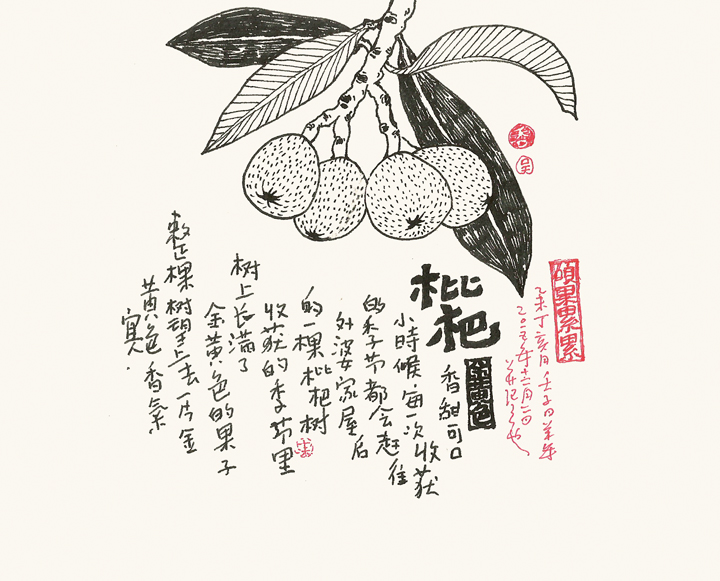 碩果累累
乙未丁亥月壬子日
二〇一五年十二月二日
枇杷
金黄色
香甜可口
小時候每一次收获
的季节都会赶往
外婆家屋后
的一棵枇杷树
收获的季节里
树上长满了
金黄色的果子
整棵树望上去一片金
黄色香氣
宜人.